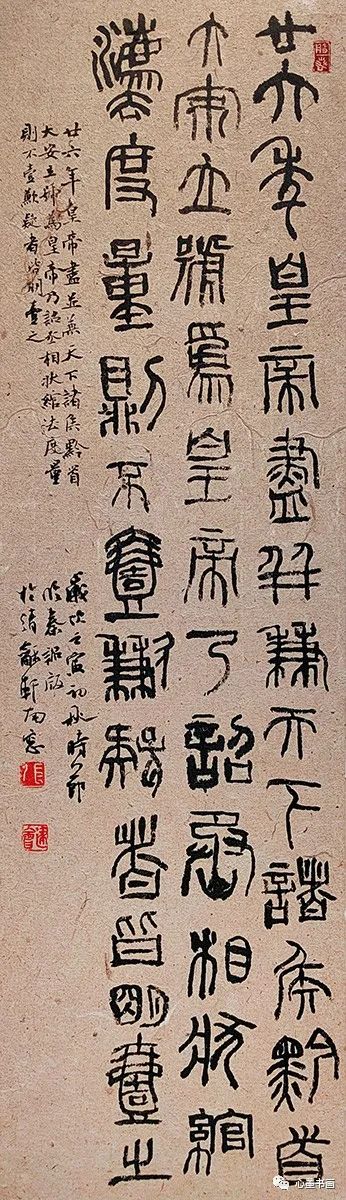 廿六年皇帝盡并兼天下諸侯黔首
大安立號爲皇帝乃詔丞相狀綰
灋度量則不壹歉疑者皆明壹之
廿六年皇帝盡並兼天下諸侯黔首
大安立號爲皇帝乃詔丞相狀綰法度量
則不壹歉疑者皆明壹之
歲次壬寅初秋時節
臨秦詔版
於靖龢軒南窗
心墨书画